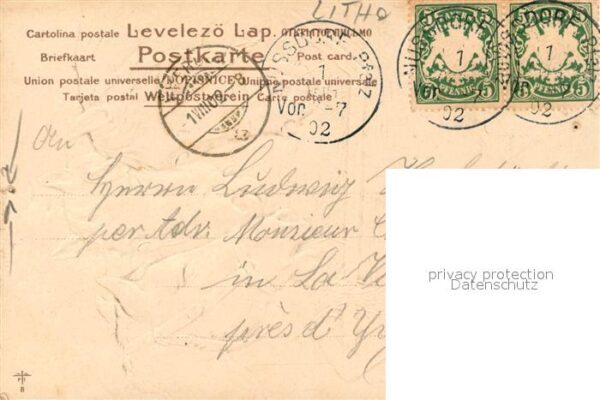 LITHO
Cartolina postale Levelező Lap. ОТКРЫТОЕ ПИСЬМО
Briefkaart Postkarte Post card.
Union postale universelle DOPISNICE Unione postale universale
Tarjeta postal Weltpostverein Carte postale
NUSSDORF PFALZ
1
Vor 7
02
NUSSDORF
1
02
NUSSDORF
1
02
PFENNIG 5
PFENNIG 5
1 VIII 02
An
Herrn Ludwig
per Adr. Monsieur
in La
près d'
privacy protection
Datenschutz
8